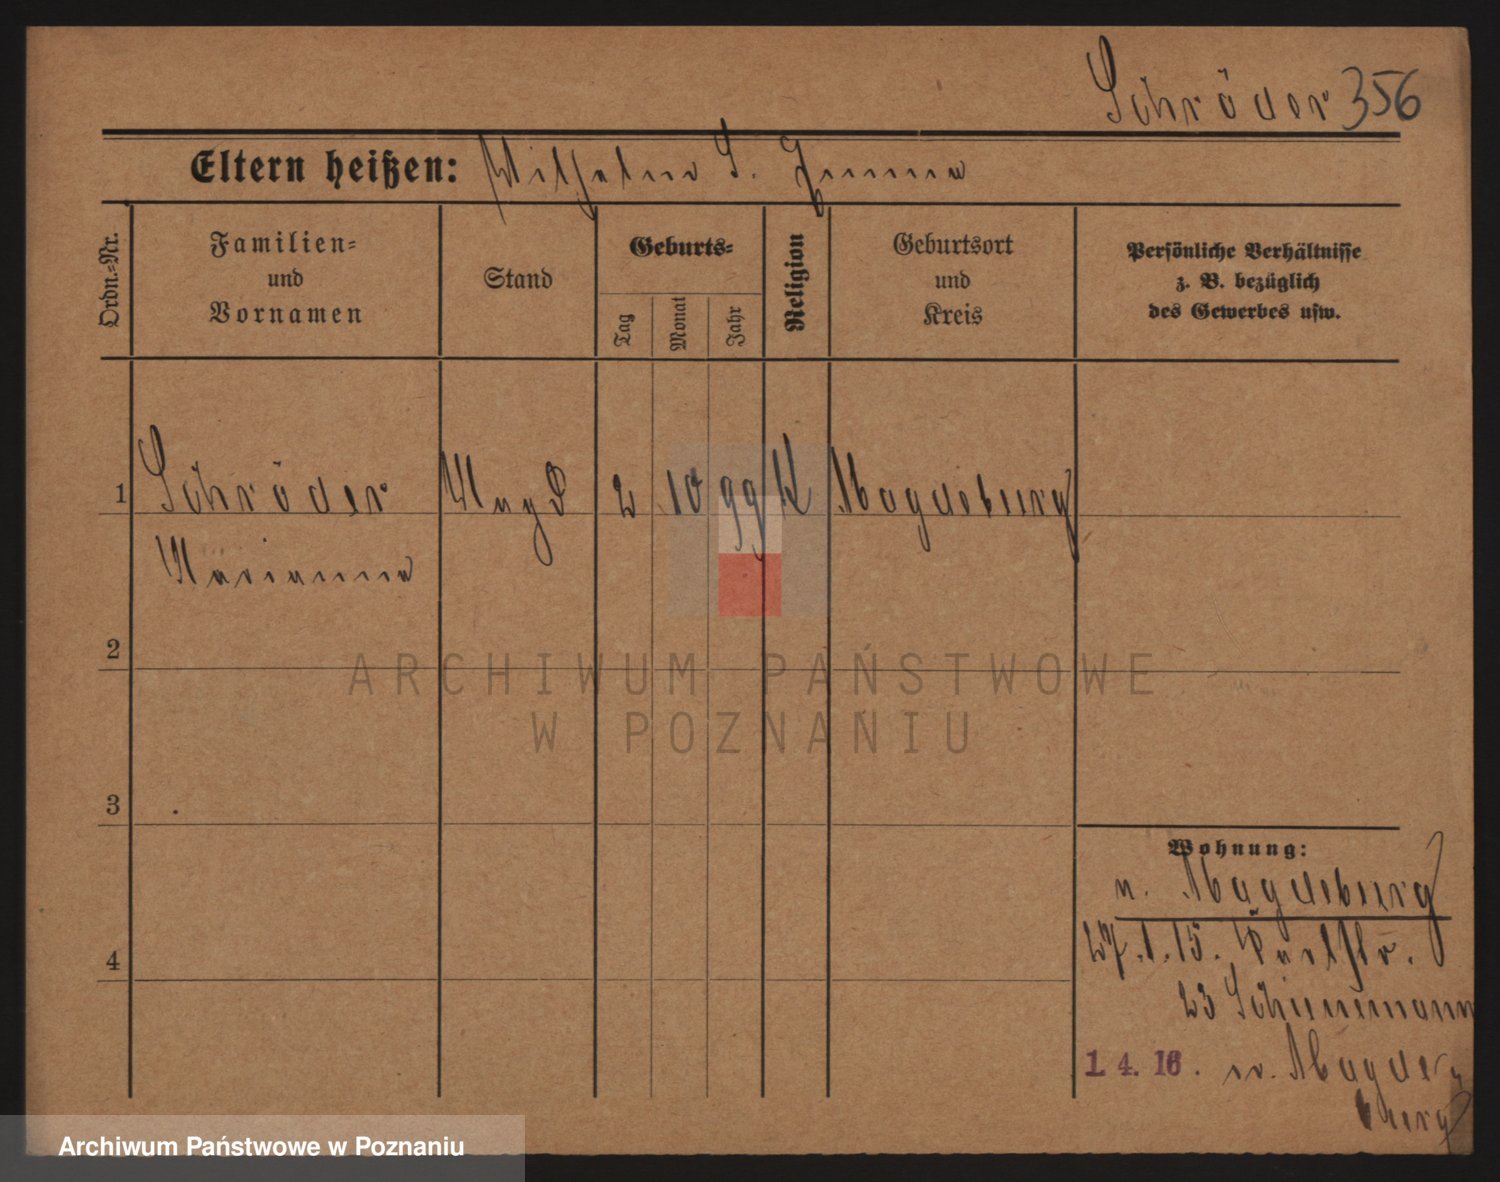 Schröder 356
Eltern heißen: Wilhelm S. Emma
Ordn.-Nr.
Familien-
und
Vornamen
Stand
Geburts-
Tag
Monat
Jahr
Religion
Geburtsort
und
Kreis
Persönliche Verhältnisse
z. B. bezüglich
des Gewerbes usw.
1 Schröder Magd 2 10 99 K Magdeburg
Marianna
2
ARCHIWUM PAŃSTWOWE
W POZNANIU
3
Wohnung:
n. Magdeburg
4
27.1.15.
23 Schünemann
1.4.16. n. Magde-
burg
Archiwum Państwowe w Poznaniu